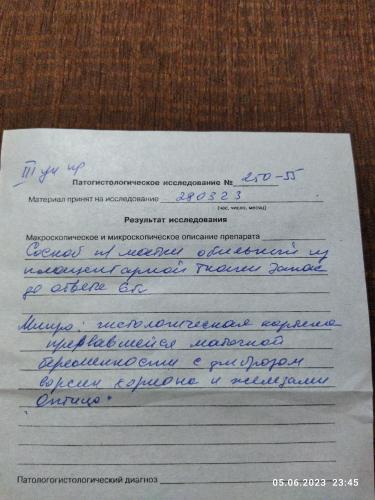 III
Патогистологическое исследование № 250-55
Материал принят на исследование 280323
(час, число, месяц)
Результат исследования
Макроскопическое и микроскопическое описание препарата
Соскоб из матки обильный из
плацентарной ткани запас
до ответа
Микро: гистологическая картина
прервавшейся маточной
беременности с фиброзом
ворсин хориона и железами
Оптица.
Патологогистологический диагноз
05.06.2023 23:45